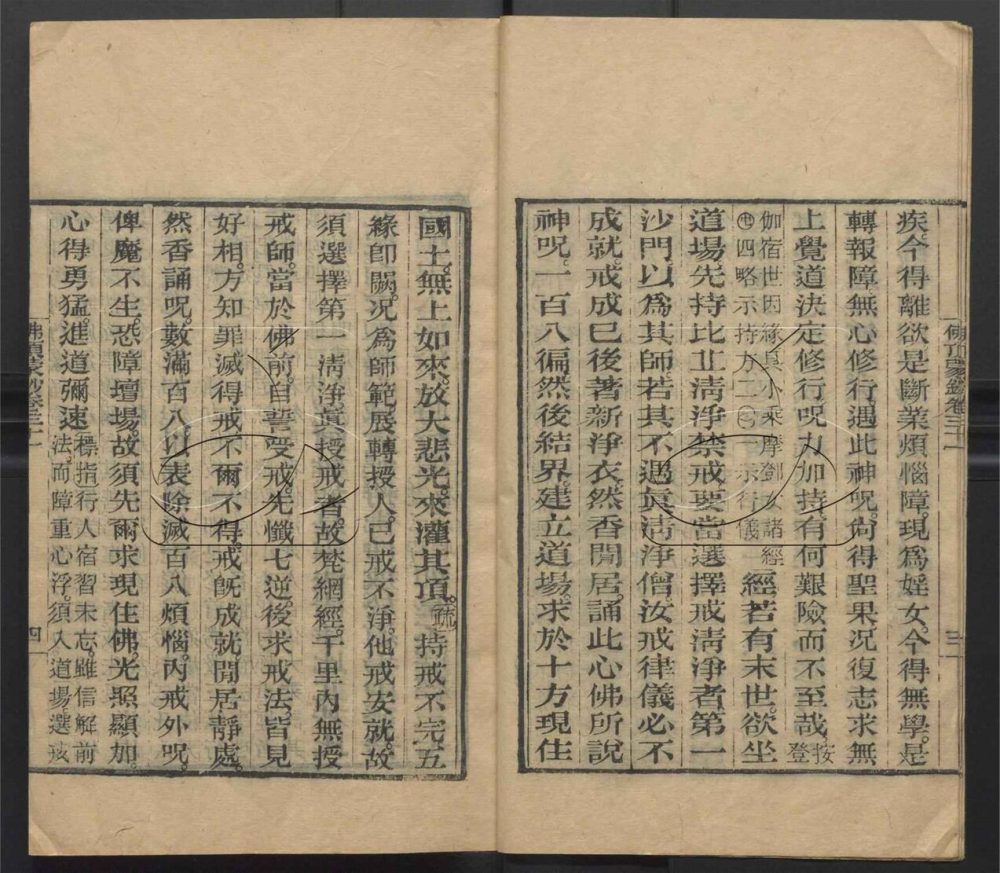 佛頂蒙鈔卷三十一
三
疾今得離欲是斷業煩惱障現爲婬女今得無學是
轉報障無心修行遇此神呪尚得聖果况復志求無
上覺道決定修行呪力加持有何艱險而不至哉按登
伽宿世因緣具小乘摩鄧女諸經
㊉四略示持方二㊀一示行儀
經若有末世欲坐
道場先持比丘清淨禁戒要當選擇戒清淨者第一
沙門以爲其師若其不遇眞清淨僧汝戒律儀必不
成就戒成已後著新淨衣然香閒居誦此心佛所說
神呪一百八徧然後結界建立道場求於十方現住
國土無上如來放大悲光來灌其頂疏持戒不完五
緣卽闕况爲師範展轉授人己戒不淨他戒安就故
須選擇第一清淨眞授戒者故梵網經千里內無授
戒師當於佛前自誓受戒先懺七逆後求戒法皆見
好相方知罪滅得戒不爾不得戒旣成就閒居靜處
然香誦呪數滿百八以表除滅百八煩惱內戒外呪
俾魔不生恐障壇場故須先爾求現住佛光照顯加
心得勇猛進道彌速
標指行人宿習未忘雖信解前
法而障重心浮須入道場選戒
佛頂蒙鈔卷三十一
四